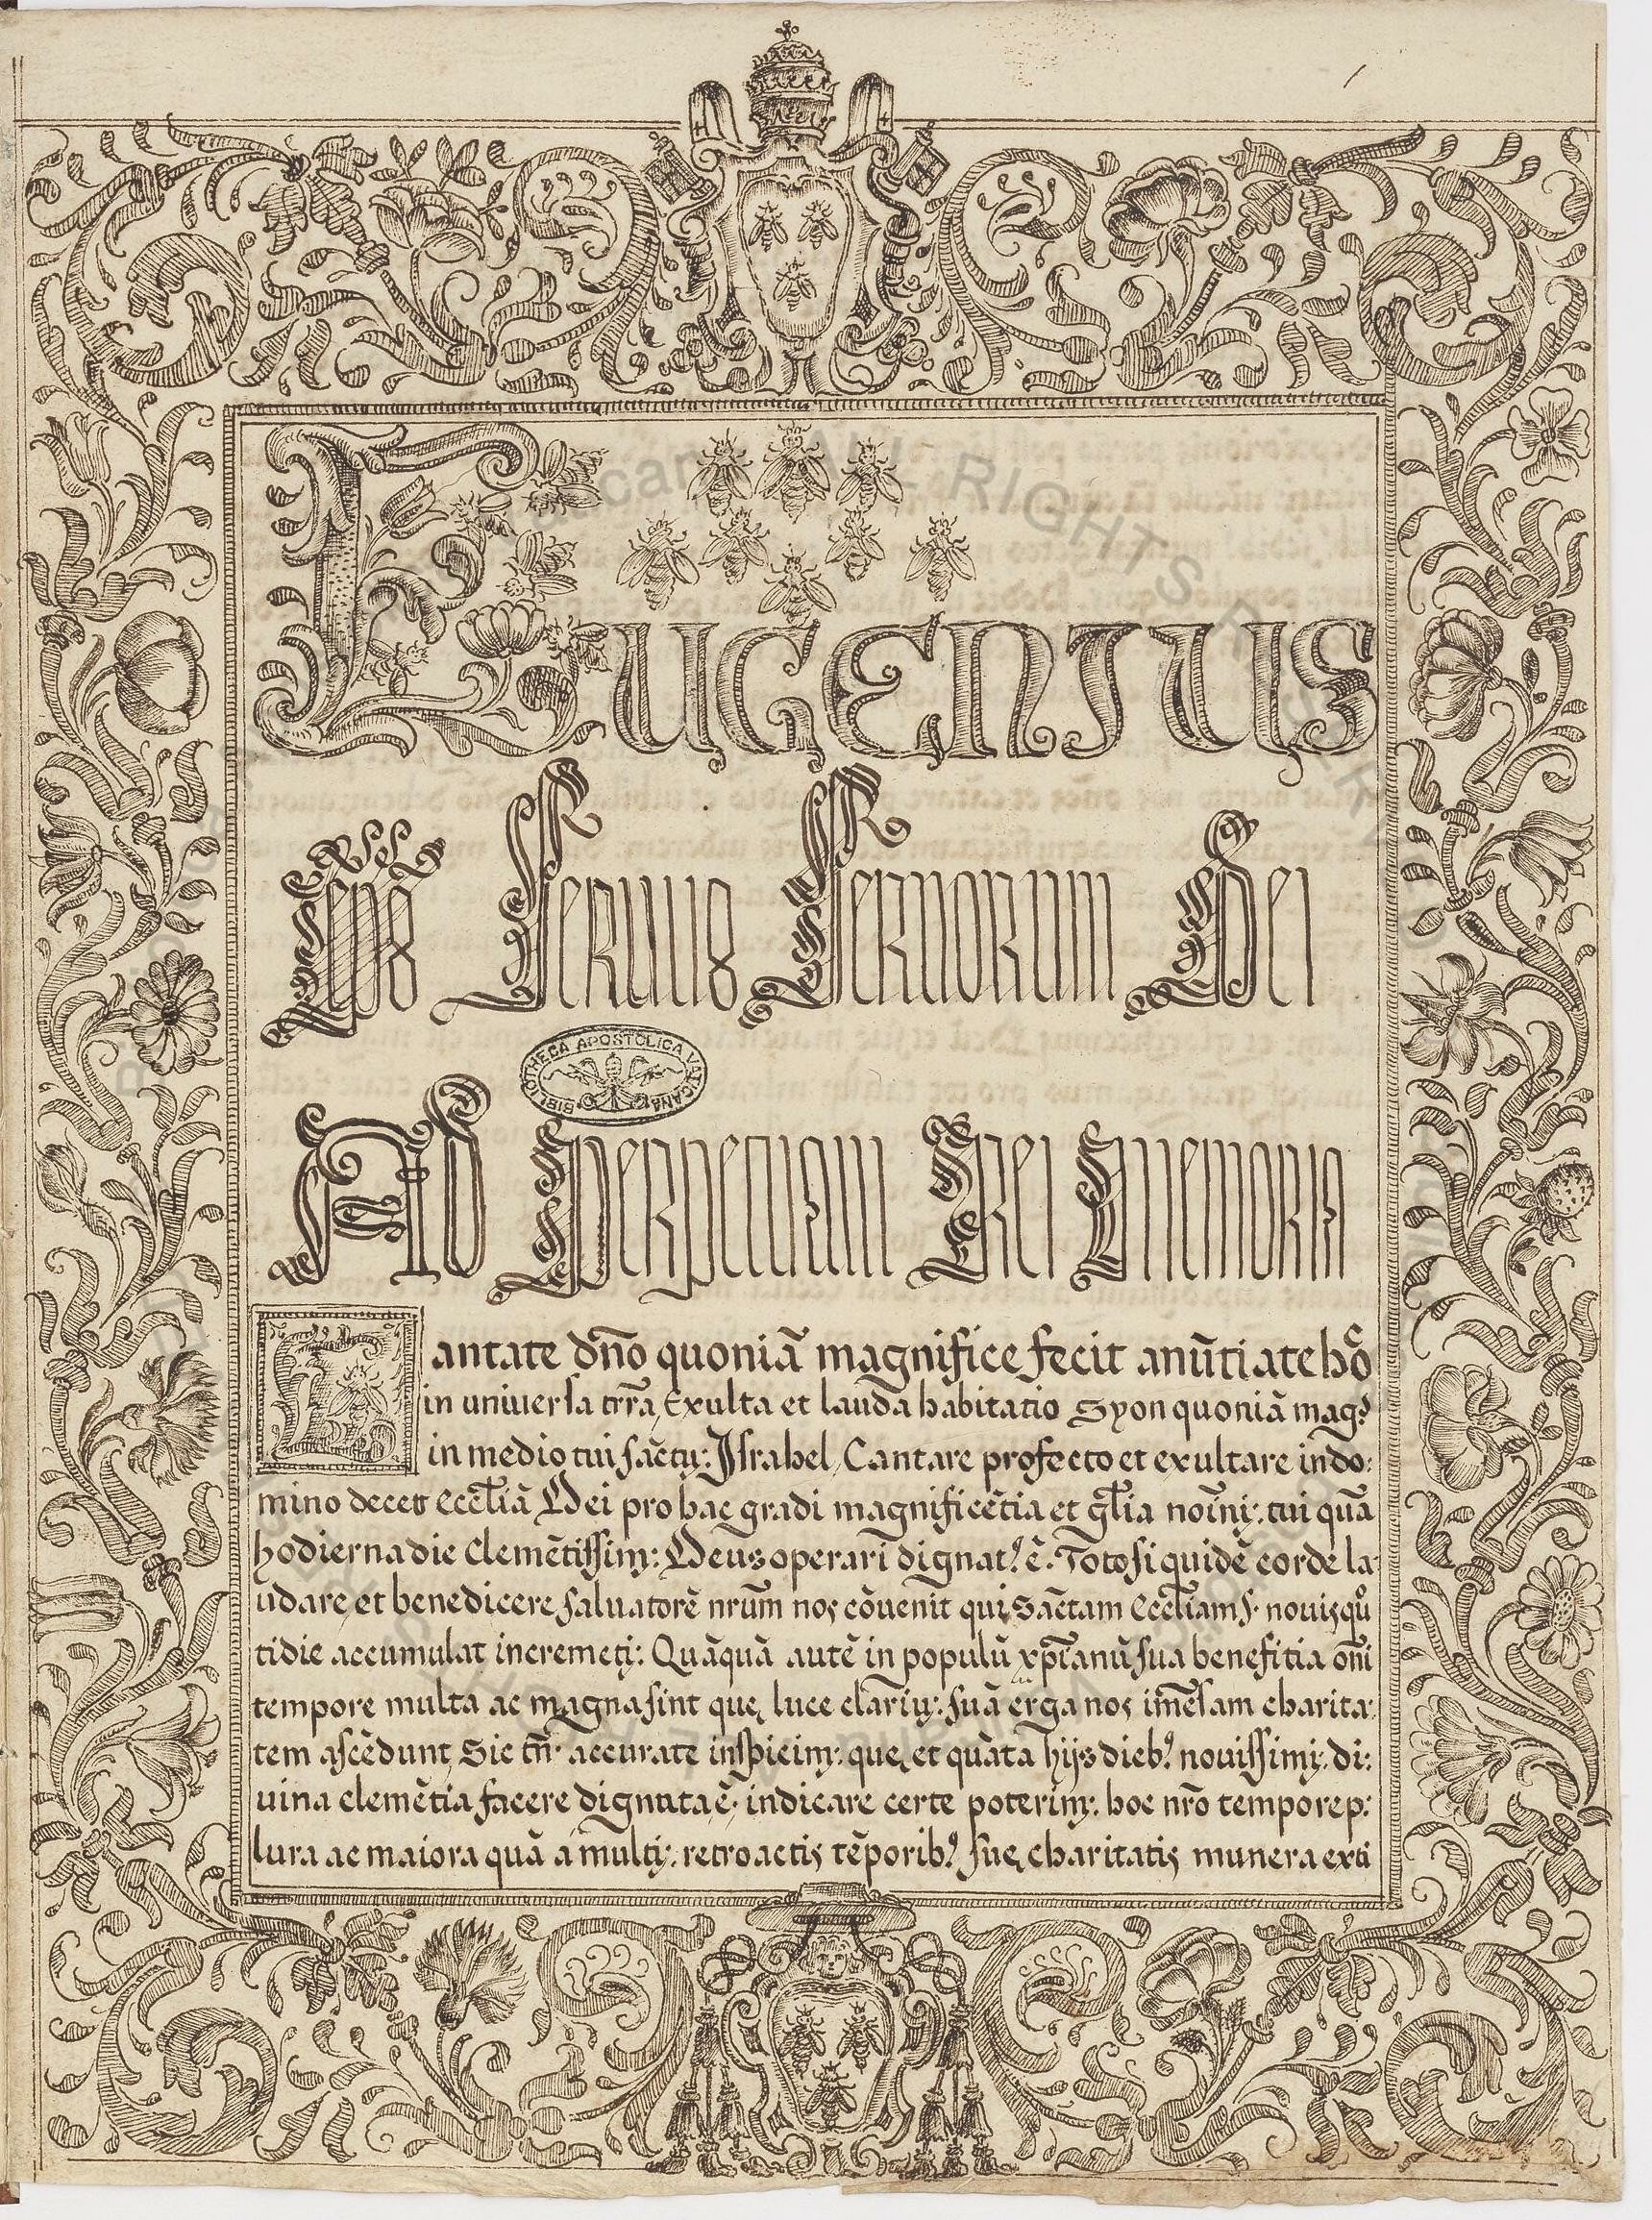 Eugenius
Ep̄s Seruus Seruorum Dei
BIBLIOTHECA APOSTOLICA VATICANA
Ad Perpetuam Rei Memoria
Cantate dn̄o quoniā magnifice fecit anūtiate hoc
in uniuersa trr̄a, Exulta et lauda habitatio Syon quoniā magꝰ
in medio tui sāctꝰ Israhel, Cantare profecto et exultare in do:
mino decet Eccl̄iā Dei pro hac gradi magnificētia et gl̄ia noīnꝭ tui quā
hodierna die Clemētissimꝰ Deus operari dignatꝰ ē. Toto siquidē corde la:
udare, et benedicere saluatorē nrūm nos cōuenit qui Sāctam Eccl̄iam s. nouis qů
tidie accumulat incremētꝭ Quāquā autē in populū xp̄ianū sua benefitia om̄i
tempore multa ac magna sint que luce clariꝰ suā erga nos im̄ēsam charita:
tem ascēdunt, Sic tn̄ accurate inspicimꝰ que, et quāta hijs diebꝰ nouissimꝭ di:
uina clemētia facere dignata ē indicare certe poterimꝰ hoc nr̄o tempore p:
lura ac maiora quā a multꝭ retroactis tēporibꝰ sue charitatis munera exti